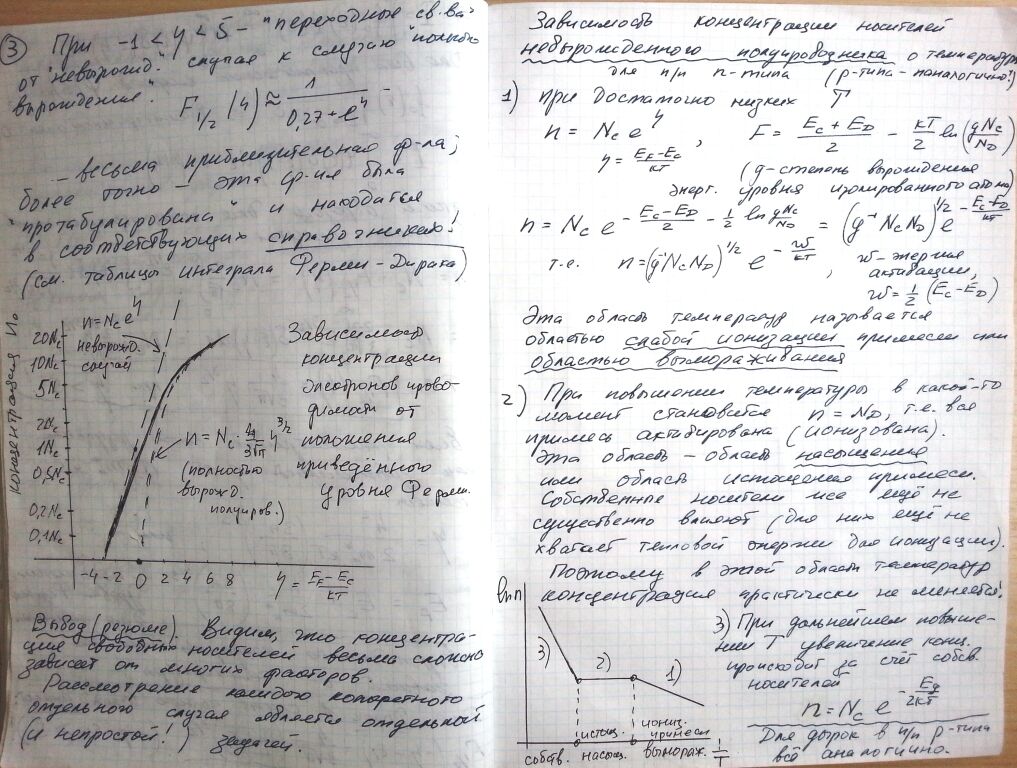 ③ При -1 < η < 5 - "переходные св-ва"
от "невырожд." случая к случаю "полного
вырождения".
F₁/₂ (η) ≈ 1 / (0,27 + e^-η)
... весьма приблизительная ф-ла;
более точно - эта ф-ия была
"протабулирована" и находится
в соответствующих справочниках!
(см. таблицы интеграла Ферми-Дирака)
концентрация n₀
20Nc
10Nc
5Nc
2Nc
1Nc
0,5Nc
0,2Nc
0,1Nc
n = Nc e^η
невырожд.
случай
n = Nc · 4/(3√π) η^3/2
(полностью
вырожд.
полупров.)
-4 -2 0 2 4 6 8 η = (E_F - Ec)/kT
Зависимость
концентрации
электронов прово-
димости от
положения
приведённого
уровня Ферми.
Вывод (резюме). Видим, что концентра-
ция свободных носителей весьма сложно
зависит от многих факторов.
Рассмотрение каждого конкретного
отдельного случая является отдельной
(и непростой!) задачей.
Зависимость концентрации носителей
невырожденного полупроводника от температуры
для п/п n-типа (p-типа - аналогично!)
1) при достаточно низких T
n = Nc e^η, F = (Ec + E_D)/2 - kT/2 ln(gNc/N_D)
η = (E_F - Ec)/kT
(g - степень вырождения
энерг. уровня изолированного атома)
n = Nc e^(-(Ec - E_D)/2 - 1/2 ln gNc/N_D) = (g⁻¹ Nc N_D)^1/2 e^(-(Ec - E_D)/kT)
т.е. n = (g⁻¹ Nc N_D)^1/2 e^(-w/kT), w - энергия
активации,
w = 1/2 (Ec - E_D)
Эта область температур называется
областью слабой ионизации примесей или
областью вымораживания
2) При повышении температуры в какой-то
момент становится n = N_D, т.е. вся
примесь активирована (ионизована).
Эта область - область насыщения
или область истощения примеси.
Собственные носители все ещё не
существенно влияют (для них ещё не
хватает тепловой энергии для ионизации).
Поэтому в этой области температур
концентрация практически не меняется!
ln n
3) 2) 1)
истощ. иониз.
примеси
собств. насыщ. выморож. 1/T
3) При дальнейшем повыше-
нии T увеличение конц.
происходит за счёт собств.
носителей
n = Nc e^(-Eg/2kT)
Для дырок в п/п p-типа
всё аналогично.